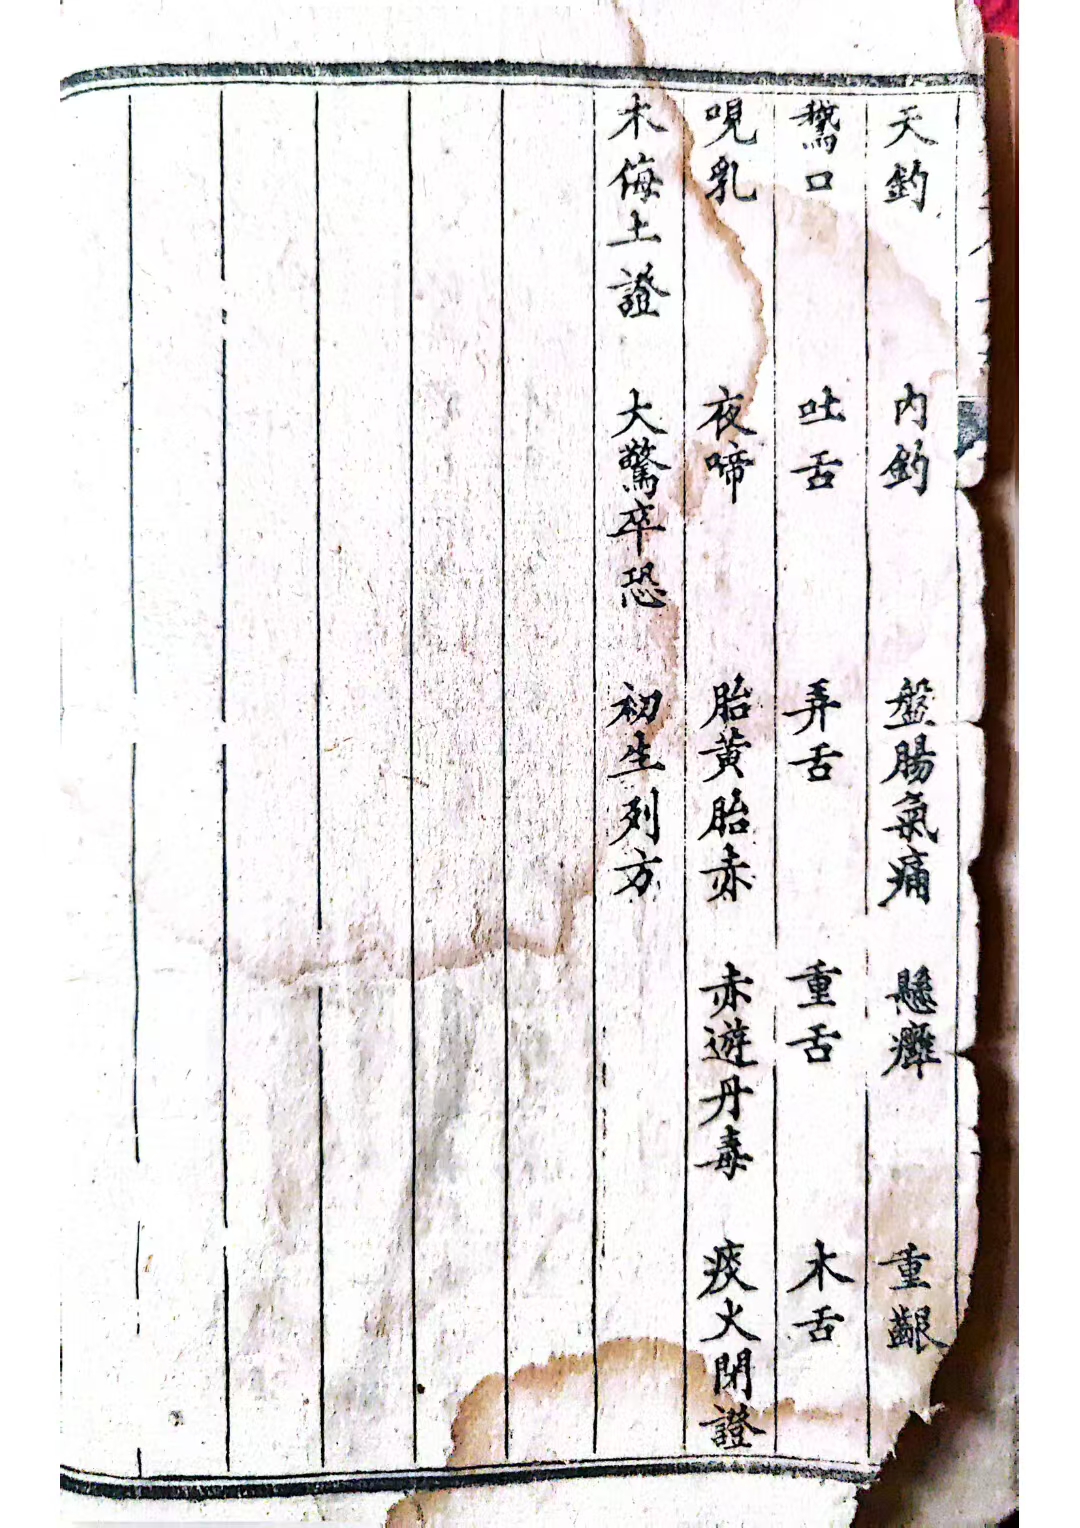 天釣 內釣 盤腸氣痛 懸癰 重齦
鵞口 吐舌 弄舌 重舌 木舌
哯乳 夜啼 胎黃胎赤 赤遊丹毒 痰火閉證
木侮土證 大驚卒恐 初生列方